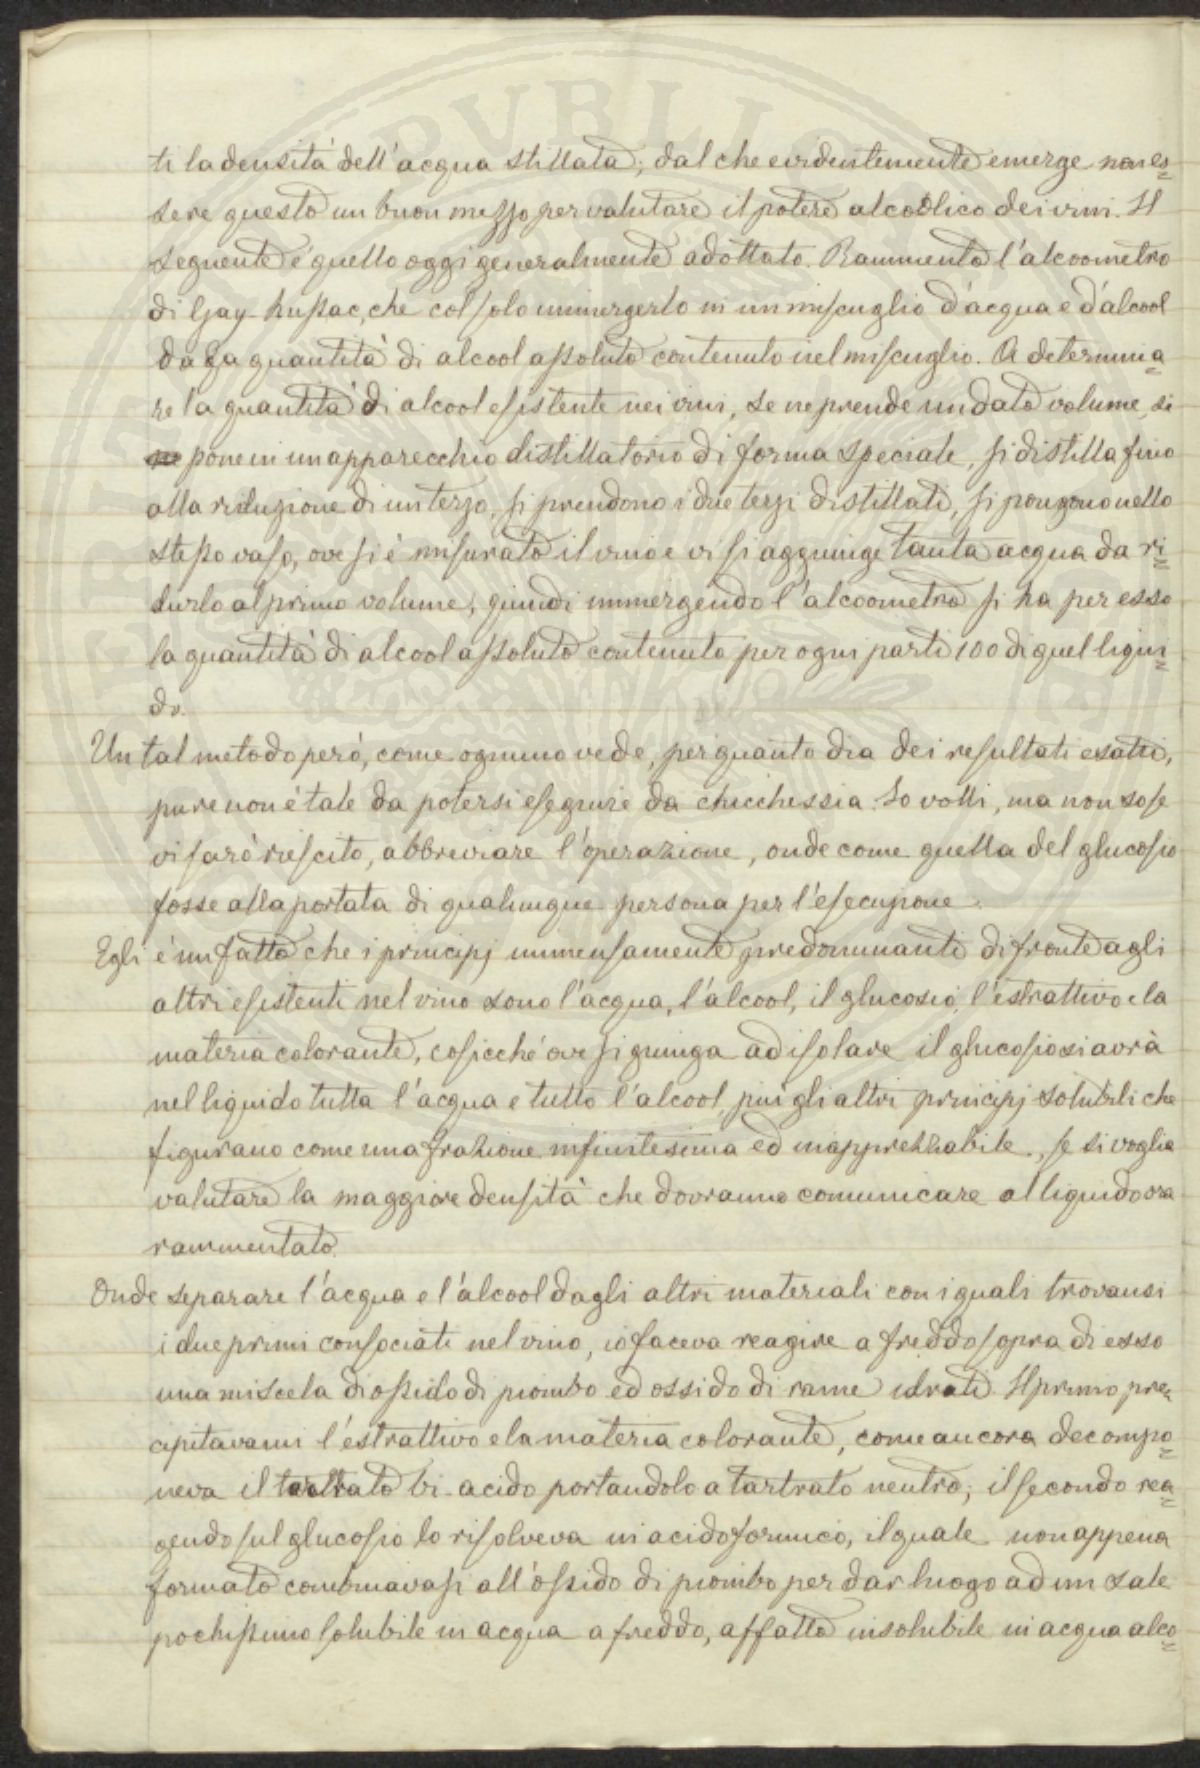 ti la densità dell'acqua stillata; dal che evidentemente emerge non es=
sere questo un buon mezzo per valutare il potere alcoolico dei vini. Il
seguente é quello oggi generalmente adottato. Rammento l'alcoometro
di Gay-Lussac, che col solo immergerlo in un miscuglio d'acqua e d'alcool
dà la quantità di alcool assoluto contenuto nel miscuglio. A determina=
re la quantità di alcool esistente nei vini, se ne prende un dato volume, si
pone in un apparecchio distillatorio di forma speciale, si distilla fino
alla riduzione di un terzo, si prendono i due terzi distillati, si pongono nello
stesso vaso, ove si è misurato il vino e vi si aggiunge tanta acqua da ri=
durlo al primo volume; quindi immergendo l'alcoometro si ha per esso
la quantità di alcool assoluto contenuto per ogni parti 100 di quel liqui=
do.
Un tal metodo però, come ognuno vede, per quanto dia dei resultati esatti,
pure non é tale da potersi eseguire da chicchessia. Io volli, ma non so se
vi sarò riescito, abbreviare l'operazione, onde come quella del glucosio
fosse alla portata di qualunque persona per l'esecuzione.
Egli é un fatto che i principj immensamente predominanti di fronte agli
altri esistenti nel vino sono l'acqua, l'alcool, il glucosio, l'estrattivo e la
materia colorante, cosicché ove si giunga ad isolare il glucosio si avrà
nel liquido tutta l'acqua e tutto l'alcool, più gli altri principj solubili che
figurano come una frazione infinitesima ed inapprezzabile, se si voglia
valutare la maggiore densità che dovranno comunicare al liquido ora
rammentato.
Onde separare l'acqua e l'alcool dagli altri materiali con i quali trovansi
i due primi consociati nel vino, io faceva reagire a freddo sopra di esso
una miscela di ossido di piombo ed ossido di rame idrati. Il primo pre=
cipitavami l'estrattivo e la materia colorante, come ancora decompo=
neva il tartrato bi-acido portandolo a tartrato neutro; il secondo rea=
gendo sul glucosio lo risolveva in acido formico, il quale non appena
formato combinavasi all'ossido di piombo per dar luogo ad un sale
pochissimo solubile in acqua a freddo, affatto insolubile in acqua alco=